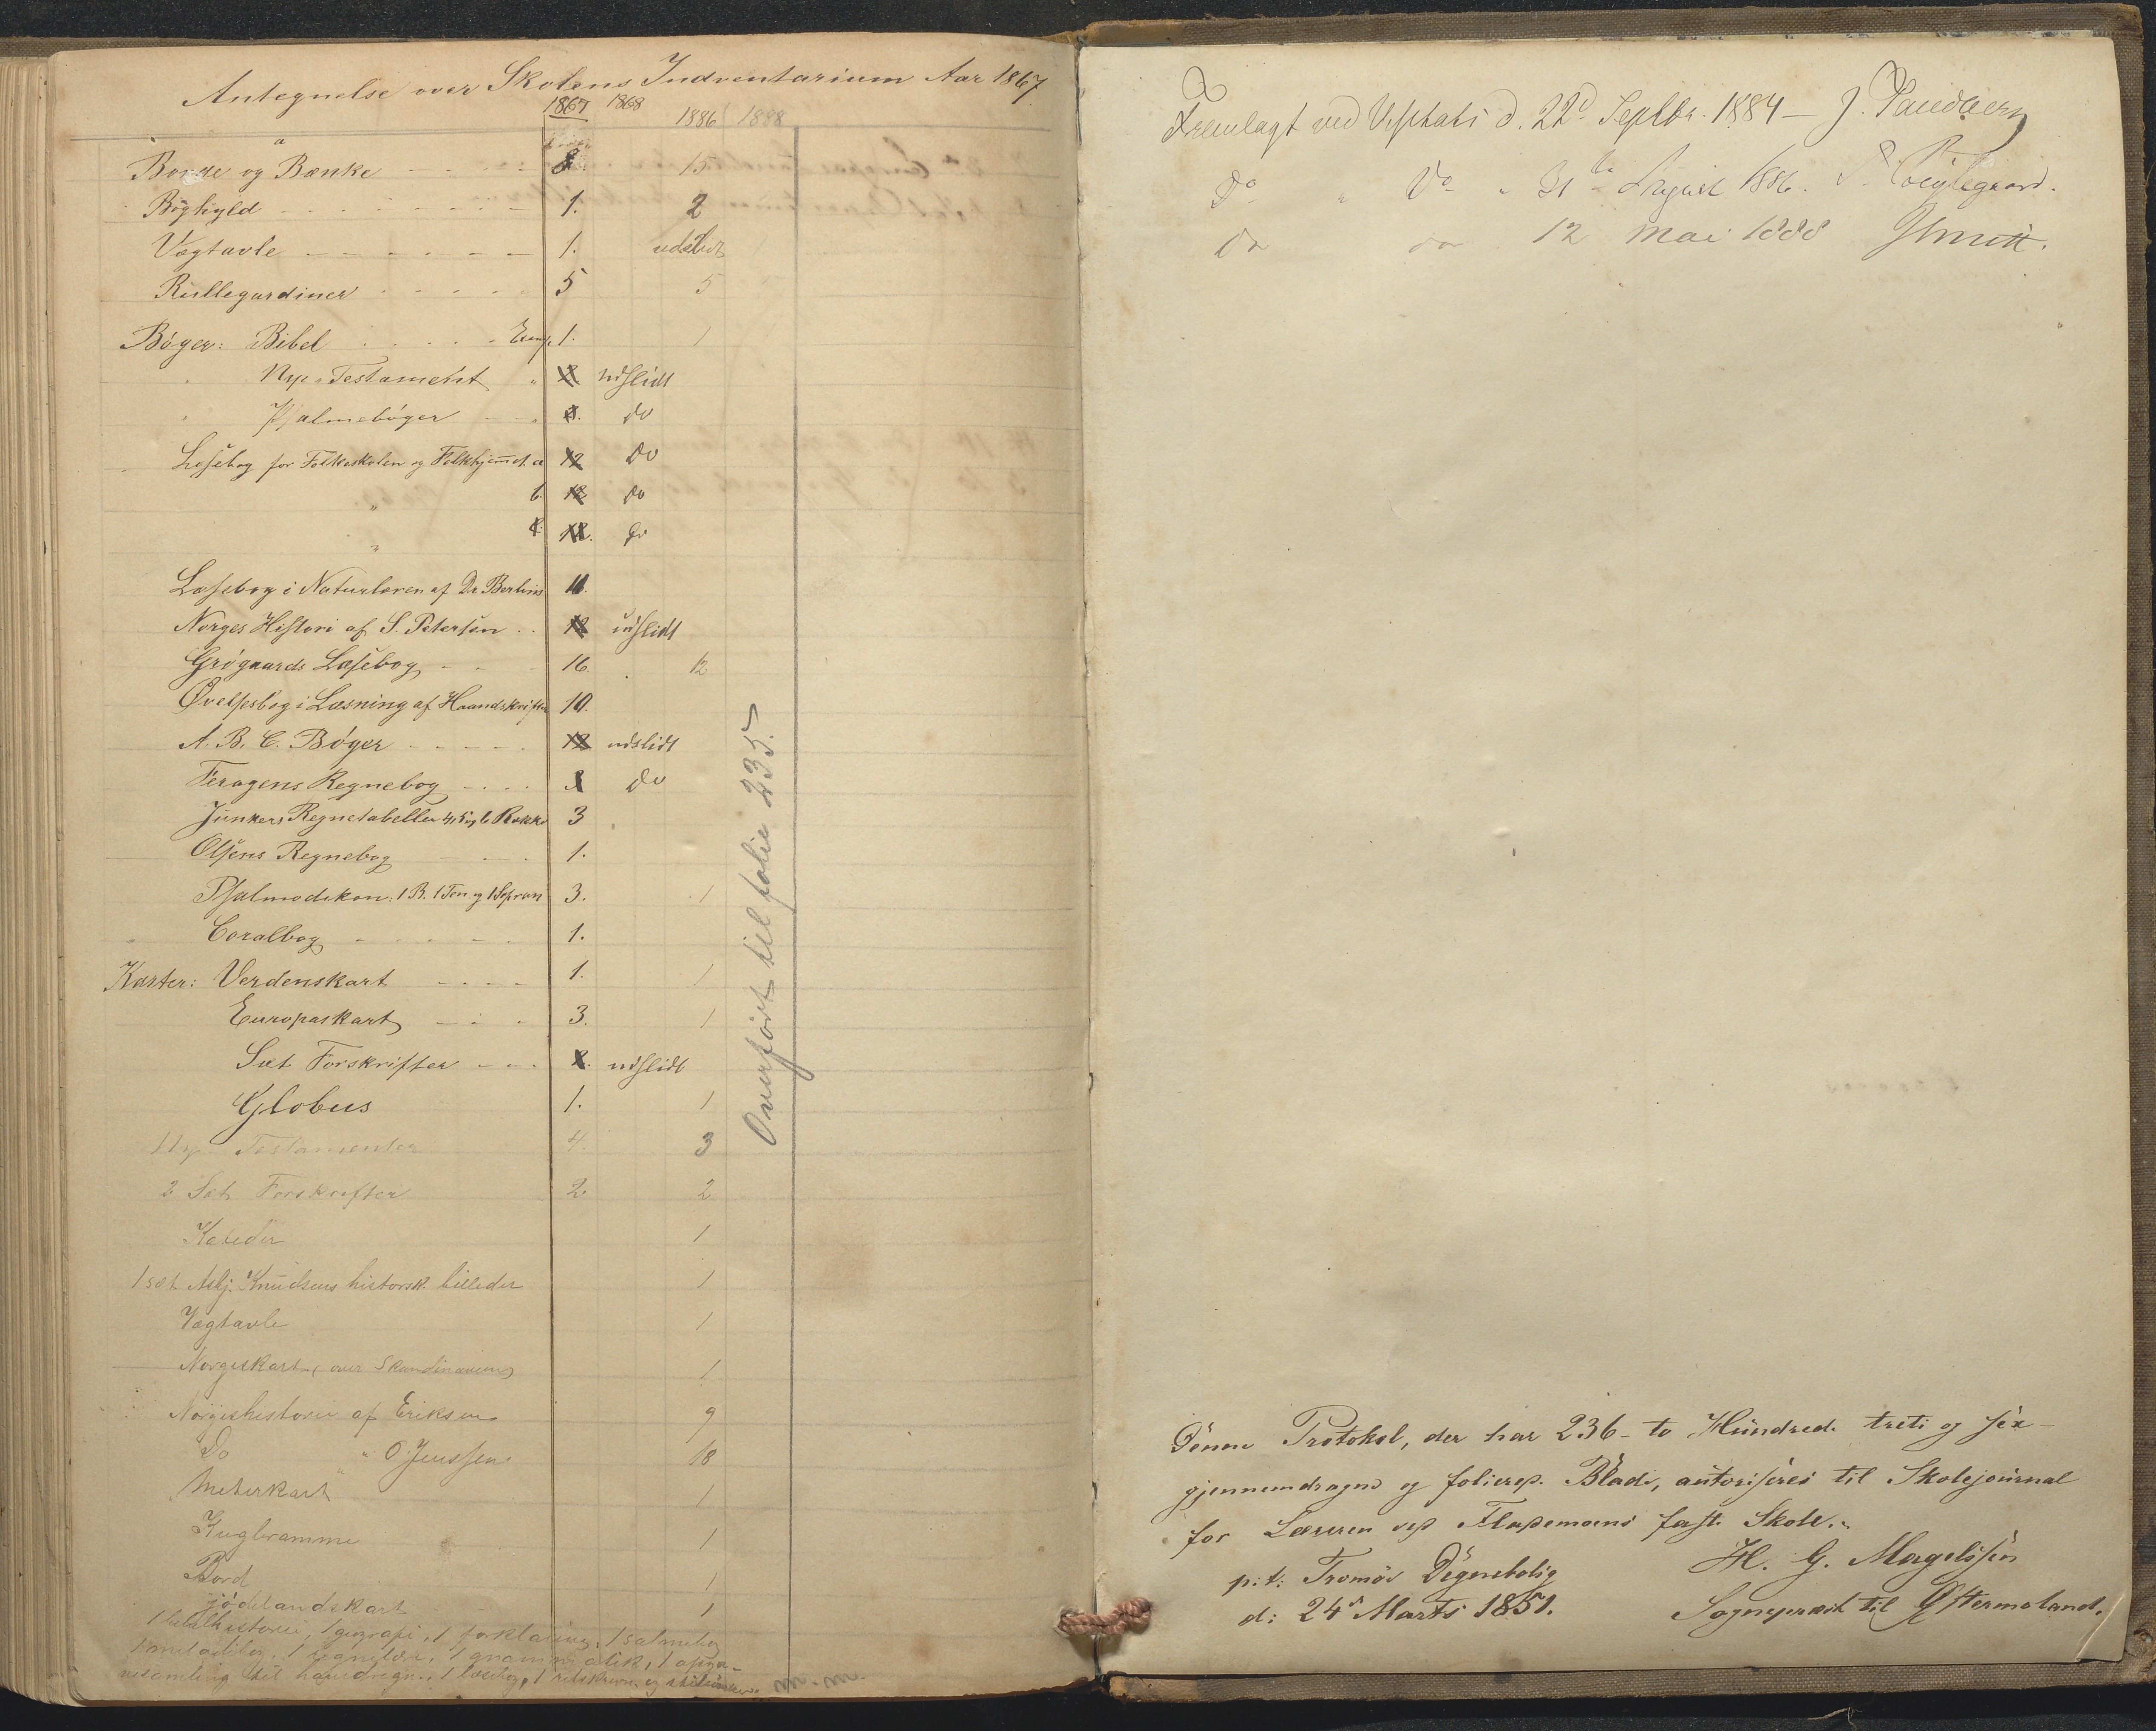 Antegnelse over Skolens Indventarium Aar 1867.
1867 1868 1886 1888
Borde og Bænke 8. 15
Boghyld 1. 2
Vægtavle 1. udslidt
Rullegardiner 5 5
Bøger: Bibel Exmp. 1. 1
" Nye Testament " 12 udslidt
" Psalmebøger 8. do
Læsebog for Folkeskolen og Folkhjemmet a 12 Do
" b. 12 do
" 12. do
Læsebog i Naturlæren af Dr Berlins 11.
Norges Histori af S. Petersen 12 udslidt
Grögaards Læsebog 16. 12
Øvelsesbog i Læsning af Haandskrifter 10.
A. B. C. Bøger 12 udslidt
Feragens Regnebog 1 do
Junkers Regnetabeller 4, 5 og 6 Række 3
Olsens Regnebog 1.
Psalmodikon: 1 B. 1 Ten og 1 Sopran 3. 1
Coralbog 1.
Karter: Verdenskart 1. 1
Europaskart 3. 1
Sæt Forskrifter udslidt
Globus 1. 1
Nye Testamenter 4. 3
2 Sæt Forskrifter 2 2
Kateder 1
1 sæt Asbj. Knudsens historisk. billeder 1
Vægtavle 1
Norgeskart (over Skandinavien) 1
Norgeshistorie af Eriksen 9
Do " O Jenssen 18
Meterkart 1
Kugleramme 1
Bord 1
jødelandskart 1
1 bibelhistorie, 1 geografi, 1 forklaring, 1 salmebog
1 melodibog, 1 regnelære, 1 grammatik, 1 opga-
vesamling til hovedregn., 1 læsebog, 1
Overført til folie 235.
Fremlagt ved d. 22d Septbr. 1884 – J.
Do " Do " 31te August 1886.
Do do 12 Mai 1888
Denne Protokol, der har 236 – to Hundrede treti og sex –
gjennemdragne og foliered. Blade, autoriseres til Skolejournal
for Læreren ved fast Skole.
p: t: Tromøe Degnebolig
d: 24de Marts 1851.
H. G. Magelssen
Sogneprest til Østermoland.